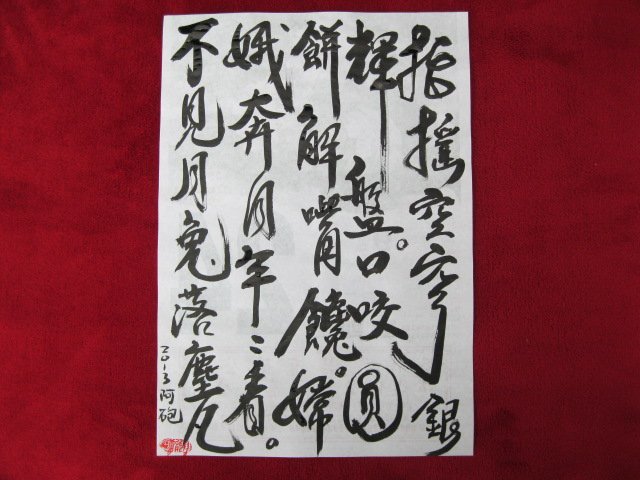 指搖空穹銀
輝盤。口咬圓
餅解嘴饞。嫦
娥奔月年〻看。
不見月兔落塵凡
2013阿砲